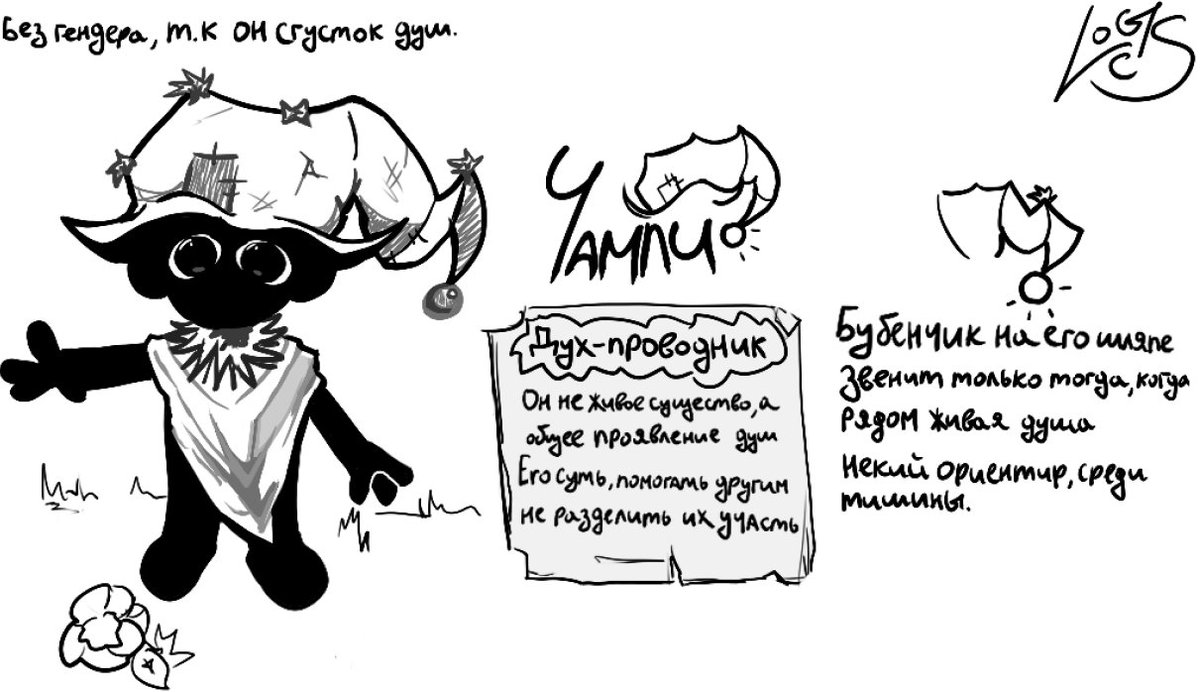 Без гендера, т.к он сгусток душ.
LOGCS
Чампи
Дух-проводник
Он не живое существо, а
общее проявление душ
Его суть, помогать другим
не разделить их участь
Бубенчик на его шляпе
звенит только тогда, когда
рядом живая душа
некий ориентир, среди
тишины.